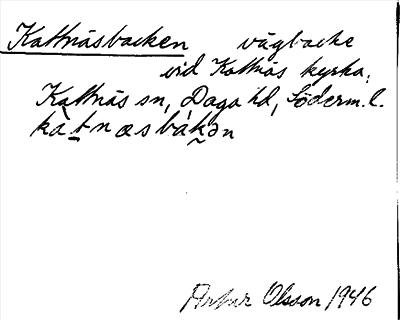 Kattnäsbacken vägbacke
vid Kattnäs kyrka,
Kattnäs sn, Daga hd, Söderm. l.
kàtnæsbákən
Artur Olsson 1946